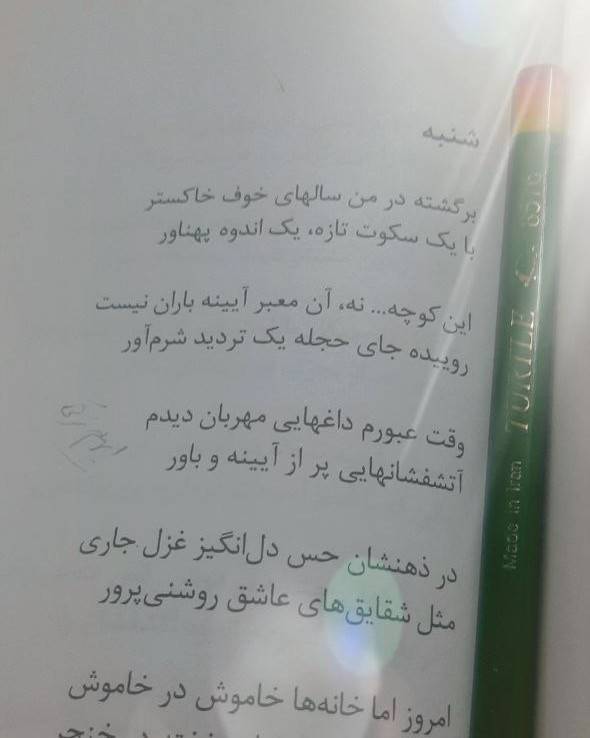 شنبه
برگشته در من سالهای خوف خاکستر
با یک سکوت تازه، یک اندوه پهناور
این کوچه... نه، آن معبر آیینه باران نیست
روییده جای حجله یک تردید شرم‌آور
وقت عبورم داغهایی مهربان دیدم
آتشفشانهایی پر از آیینه و باور
در ذهنشان حس دل‌انگیز غزل جاری
مثل شقایق‌های عاشق روشنی‌پرور
امروز اما خانه‌ها خاموش در خاموش
در خنجر
TURTLE
Made in Iran